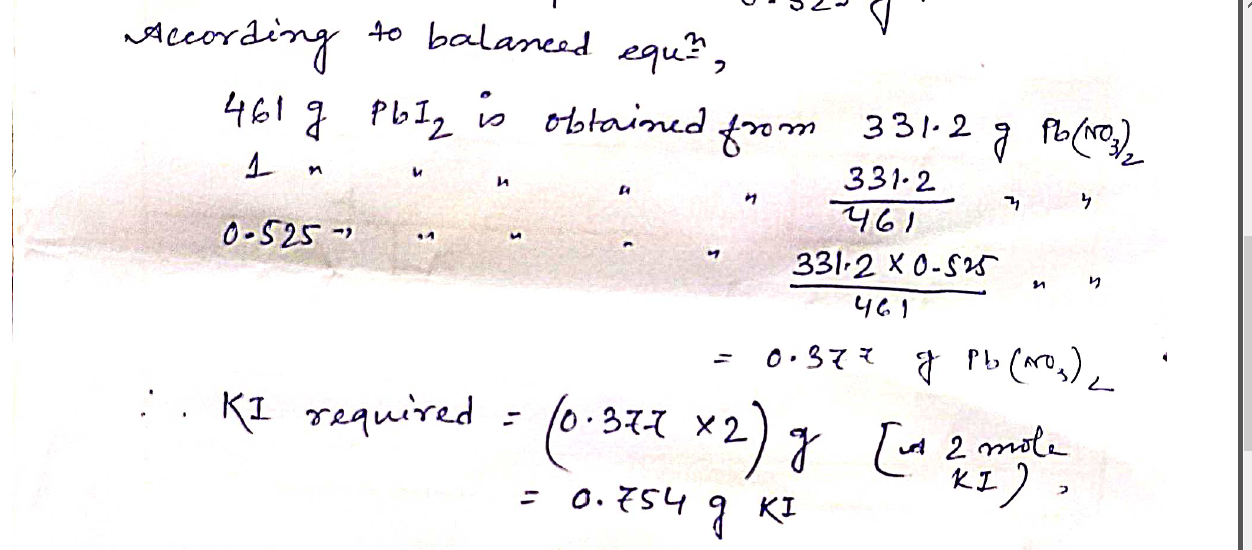 According to balanced equⁿ,
461 g PbI₂ is obtained from 331.2 g Pb(NO₃)₂
1 " " " " " 331.2/461 " "
0.525 " " " " " 331.2 × 0.525/461 " "
= 0.377 g Pb(NO₃)₂
∴ KI required = (0.377 × 2) g [as 2 mole KI),
= 0.754 g KI